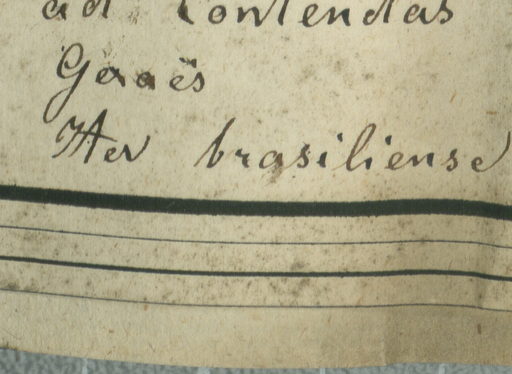 ad Contendas
Geraës
Iter brasiliense